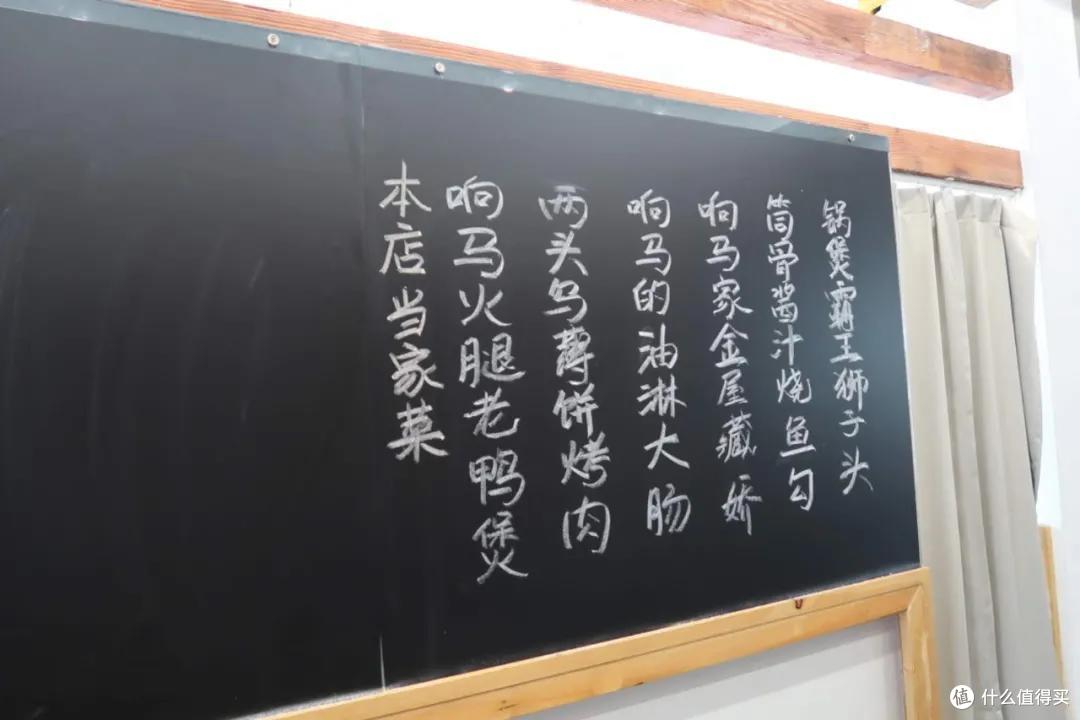 本店当家菜
响马火腿老鸭煲
两头乌薄饼烤肉
响马的油淋大肠
响马家金屋藏娇
筒骨酱汁烧鱼勾
锅煲霸王狮子头
值 什么值得买